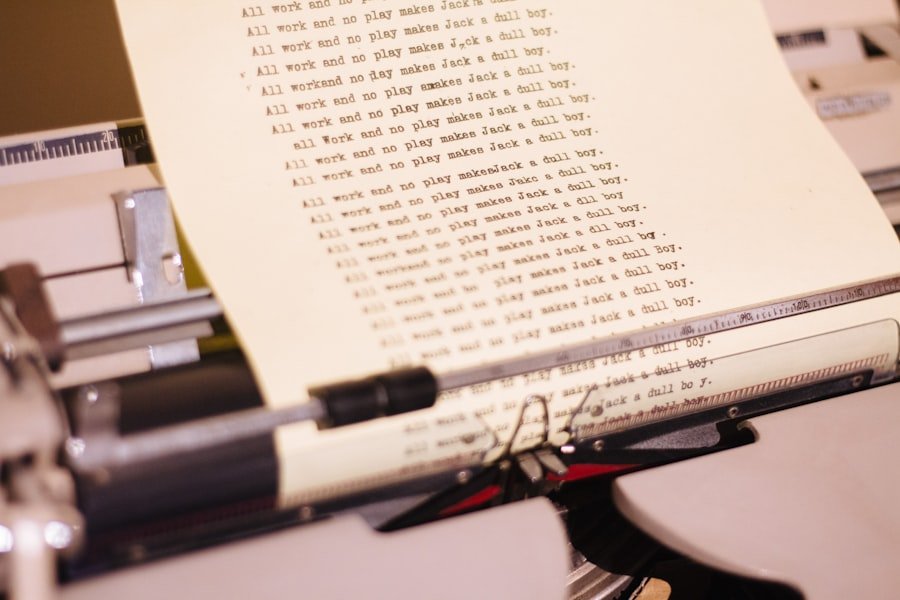 All work and no play makes Jack a dull boy.
All work and no play makes Jack a dull boy.
All work and no play makes Jack a dull boy.
All workand no play makes Jack a dull boy.
All work and no play makes Jack a dull boy.
All work and no play makes Jack a dull boy.
all Work and no play makes Jack a dull boy.
All work and no play makes Jack a dull boy.
All work and no play makes Jack a dull boy.
All work and no play makesJack a dull boy.
All work and no play makes Jakc a dull boy.
All work and no play makes Jack a dull boy.
All work and no play makes Jack a dll boy
All work and no play makes Jack a dull boy.
All workand no play makes Jack a dll boy.
All work and no play makes Jack a dull
All work and no play makes Jack a dull Boy.
All work and no play makes Jack a dull boy.
All work and no play makes Jack a dull boy.
All work and no play makes Jack a dull boy.
and no play makes Jack a dull boy.
All work and no play makes Jack a dull boy.
All work makes Jack a dull bo y.
All Jack a dull boy.